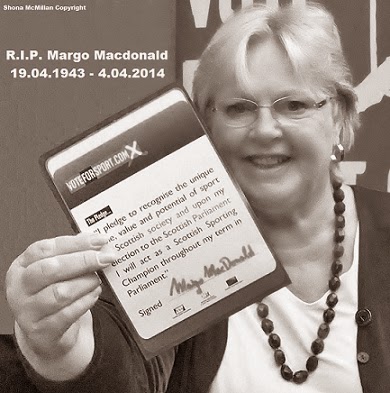 Shona McMillan Copyright
R.I.P. Margo Macdonald
19.04.1943 - 4.04.2014
VOTEFORSPORT.COM
The Pledge...
"I pledge to recognise the unique
value and potential of sport
Scottish society and upon my
election to the Scottish Parliament
I will act as a Scottish Sporting
Champion throughout my term in
Parliament."
Margo MacDonald
Signed